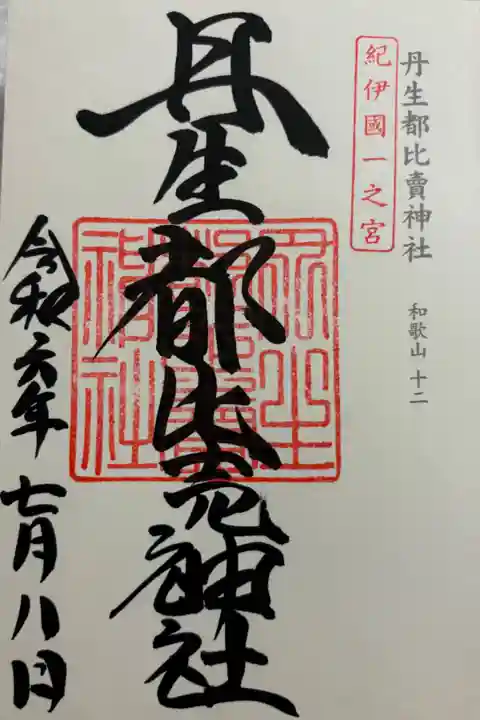 丹生都比賣神社
和歌山 十二
紀伊國一之宮
丹生都比売神社
令和六年 七月八日